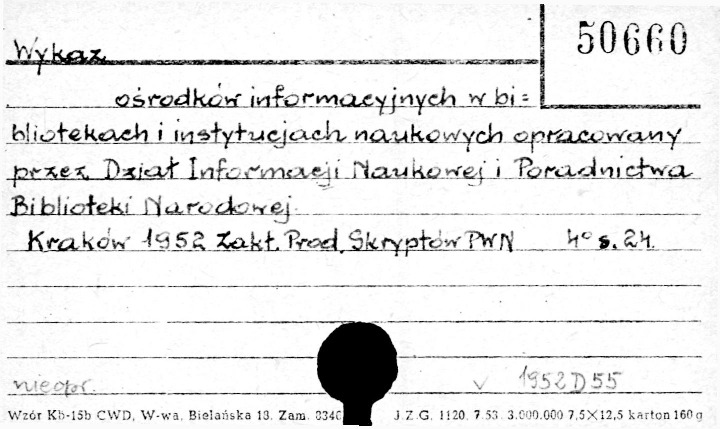 50660
Wykaz
ośrodków informacyjnych w bi=
bliotekach i instytucjach naukowych opracowany
przez Dział Informacji Naukowej i Poradnictwa
Biblioteki Narodowej.
Kraków 1952 Zakł. Prod. Skryptów PWN 4° s. 24.
nieopr. v 1952 D 55
Wzór Kb-15b CWD, W-wa, Bielańska 18. Zam. J.Z.G. 1120. 7.53. 3.000.000 7,5×12,5 karton 160 g